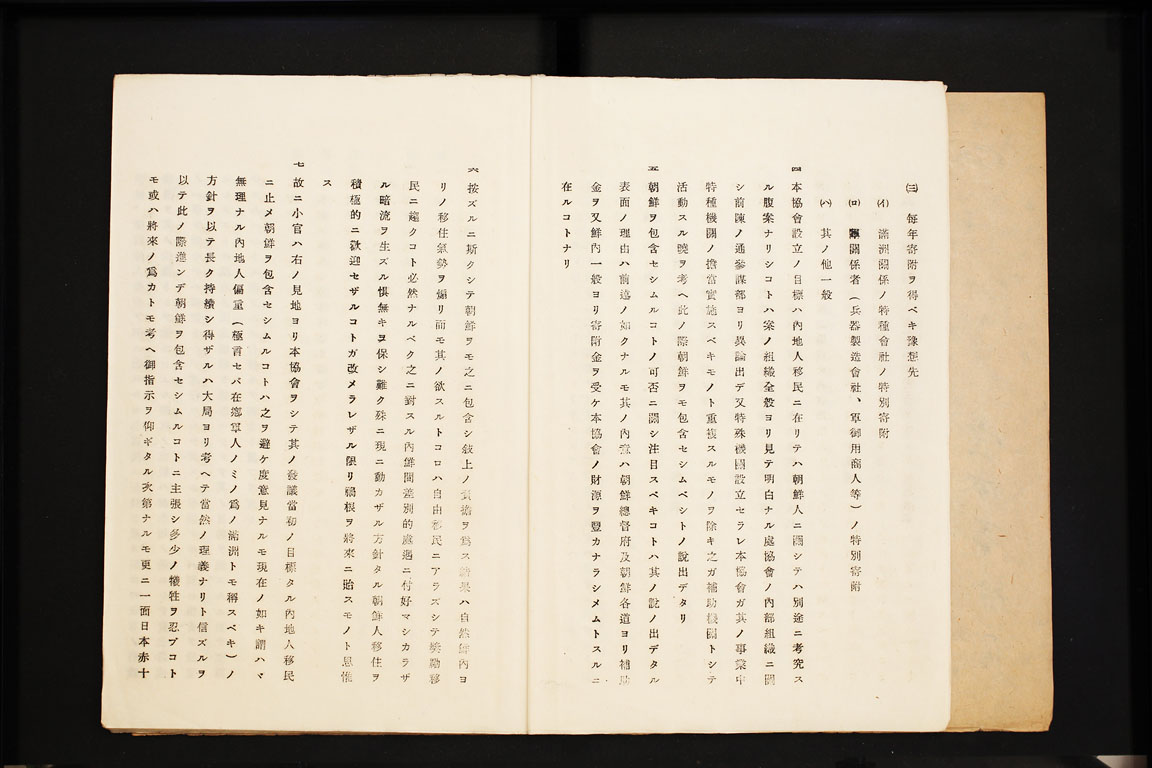 ㈢ 每年寄附ヲ得ベキ豫想先
㈠ 滿洲關係ノ特種會社ノ特別寄附
㈺ 軍關係者（兵器製造會社、軍御用商人等）ノ特別寄附
㈻ 其ノ他一般
四 本協會設立ノ目標ハ內地人移民ニ在リテハ朝鮮人ニ關シテハ別途ニ考究ス
ル腹案ナリシコトハ案ノ組織全般ヨリ見テ明白ナル處協會ノ內部組織ニ關
シ前陳ノ通參謀部ヨリ異論出デ又特殊機關設立セラレ本協會ガ其ノ事業中
特種機關ノ擔當實施スベキモノト重複スルモノヲ除キ之ガ補助機關トシテ
活動スル曉ヲ考ヘ此ノ際朝鮮ヲモ包含セシムベシトノ說出デタリ
五 朝鮮ヲ包含セシムルコトノ可否ニ關シ注目スベキコトハ其ノ說ノ出デタル
表面ノ理由ハ前述ノ如クナルモ其ノ內意ハ朝鮮總督府及朝鮮各道ヨリ補助
金ヲ又鮮內一般ヨリ寄附金ヲ受ケ本協會ノ財源ヲ豐カナラシメムトスルニ
在ルコトナリ
六 按ズルニ斯クシテ朝鮮ヲモ之ニ包含シ敍上ノ負擔ヲ爲ス結果ハ自然鮮內ヨ
リノ移住氣勢ヲ煽リ而モ其ノ欲スルトコロハ自由移民ニアラズシテ獎勵移
民ニ趨クコト必然ナルベク之ニ對スル內鮮間差別的處遇ニ付好マシカラザ
ル暗流ヲ生ズル惧無キヲ保シ難ク殊ニ現ニ動カザル方針タル朝鮮人移住ヲ
積極的ニ歡迎セザルコトガ改メラレザル限リ禍根ヲ將來ニ貽スモノト思惟
ス
七 故ニ小官ハ右ノ見地ヨリ本協會ヲシテ其ノ發議當初ノ目標タル內地人移民
ニ止メ朝鮮ヲ包含セシムルコトハ之ヲ避ケ度意見ナルモ現在ノ如キ謂ハヾ
無理ナル內地人偏重（極言セバ在鄕軍人ノミノ爲ノ滿洲トモ稱スベキ）ノ
方針ヲ以テ長ク持續シ得ザルハ大局ヨリ考ヘテ當然ノ理義ナリト信ズルヲ
以テ此ノ際進ンデ朝鮮ヲ包含セシムルコトニ主張シ多少ノ犧牲ヲ忍ブコト
モ或ハ將來ノ爲カトモ考ヘ御指示ヲ仰ギタル次第ナルモ更ニ一面日本赤十